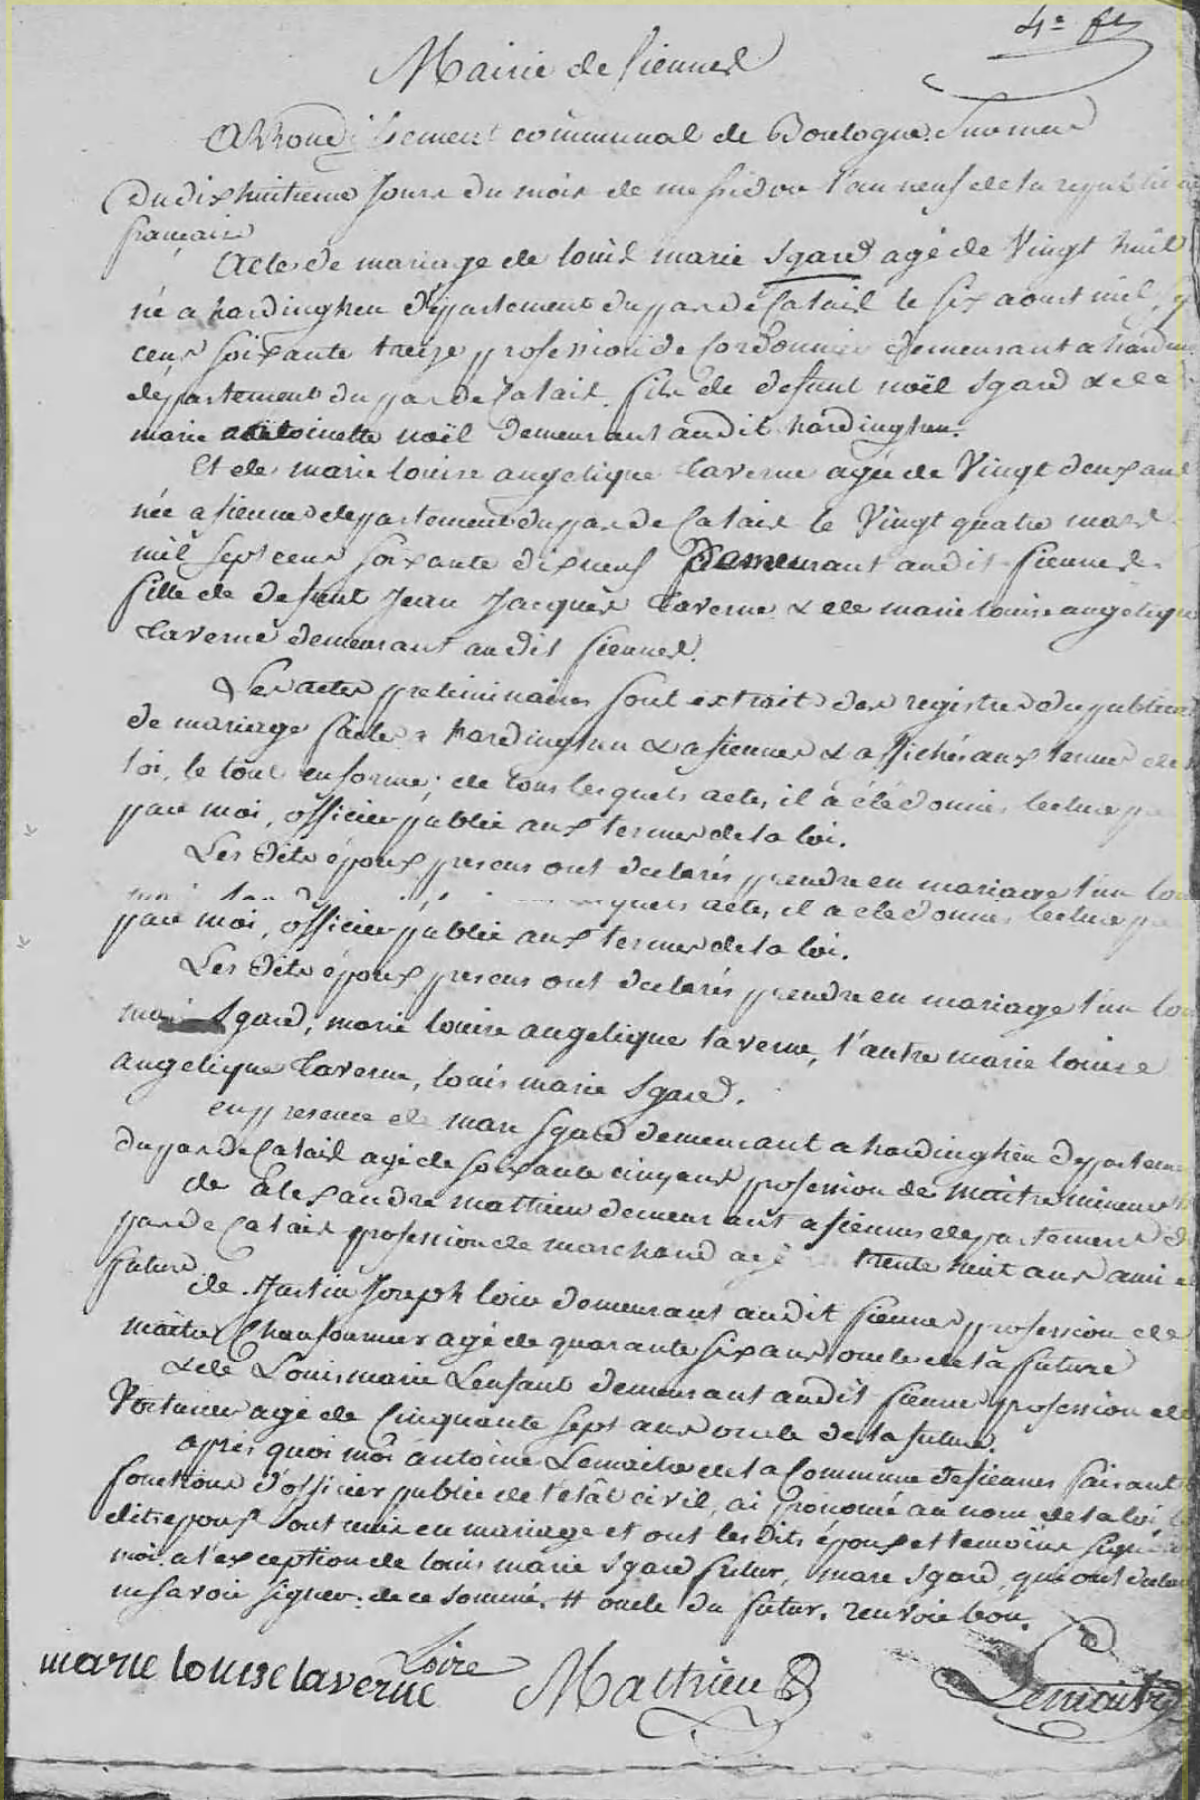 4e
Mairie de fiennes
Arrondissement communal de Boulogne Sur mer
Du dix huitieme jour du mois de messidor l'an neuf de la republi
française
Acte de mariage de louis marie Sgard agé de Vingt huit
né a hardinghen département du pas de Calais le six aoust mil
cens soixante treize profession de Cordonnier demeurant a hardin
departement du pas de Calais. fils de defunt noël Sgard & de
marie antoinette noël demeurant audit hardinghen.
Et de marie louise angelique taverne agée de Vingt deux ans
née a fiennes departement du pas de Calais le Vingt quatre mars
mil sept cens soixante dix neuf Demeurant audit fiennes.
fille de defunt Jean Jacques taverne & de marie louise angelique
taverne demeurant audit fiennes.
Les actes preliminaires sont extrait des registres de publica
de mariage faites a hardinghen & a fiennes & affichés aux termes de
loi, le tout en forme; de tous lesquels actes, il a été donné lecture
par moi, officier public aux termes de la loi.
Les dits époux presens ont declarés prendre en mariage l'un lou
lesquels actes, il a été donné lecture
par moi, officier public aux termes de la loi.
Les dits époux presens ont declarés prendre en mariage l'un lou
Sgard, marie louise angelique taverne, l'autre marie louise
angelique taverne, louis marie Sgard.
en presence de marc Sgard demeurant a hardinghen departeme
du pas de Calais agé de soixante cinq ans profession de maitre mineur
de Alexandre mathieu demeurant a fiennes departement d
pas de Calais profession de marchand agé trente huit ans ami
future
de Justin Joseph loire demeurant audit fiennes profession de
maitre Chaufournier agé de quarante six ans oncle de la future
& de Louis marie Lenfant demeurant audit fiennes profession de
agé de Cinquante sept ans oncle de la future.
après quoi moi antoine Lemaitre de la Commune de fiennes faisant
fonctions d'officier public de l'etât civil, ai prononcé au nom de la loi
dits époux sont unis en mariage et ont les dits époux et temoins signé
moi. a l'exception de louis marie Sgard futur, marc Sgard, qui ont declaré
ne savoir signer. de ce sommé. # oncle du futur. renvoie bon.
Loire
marie louise taverne
Mathieu
Lemaitre